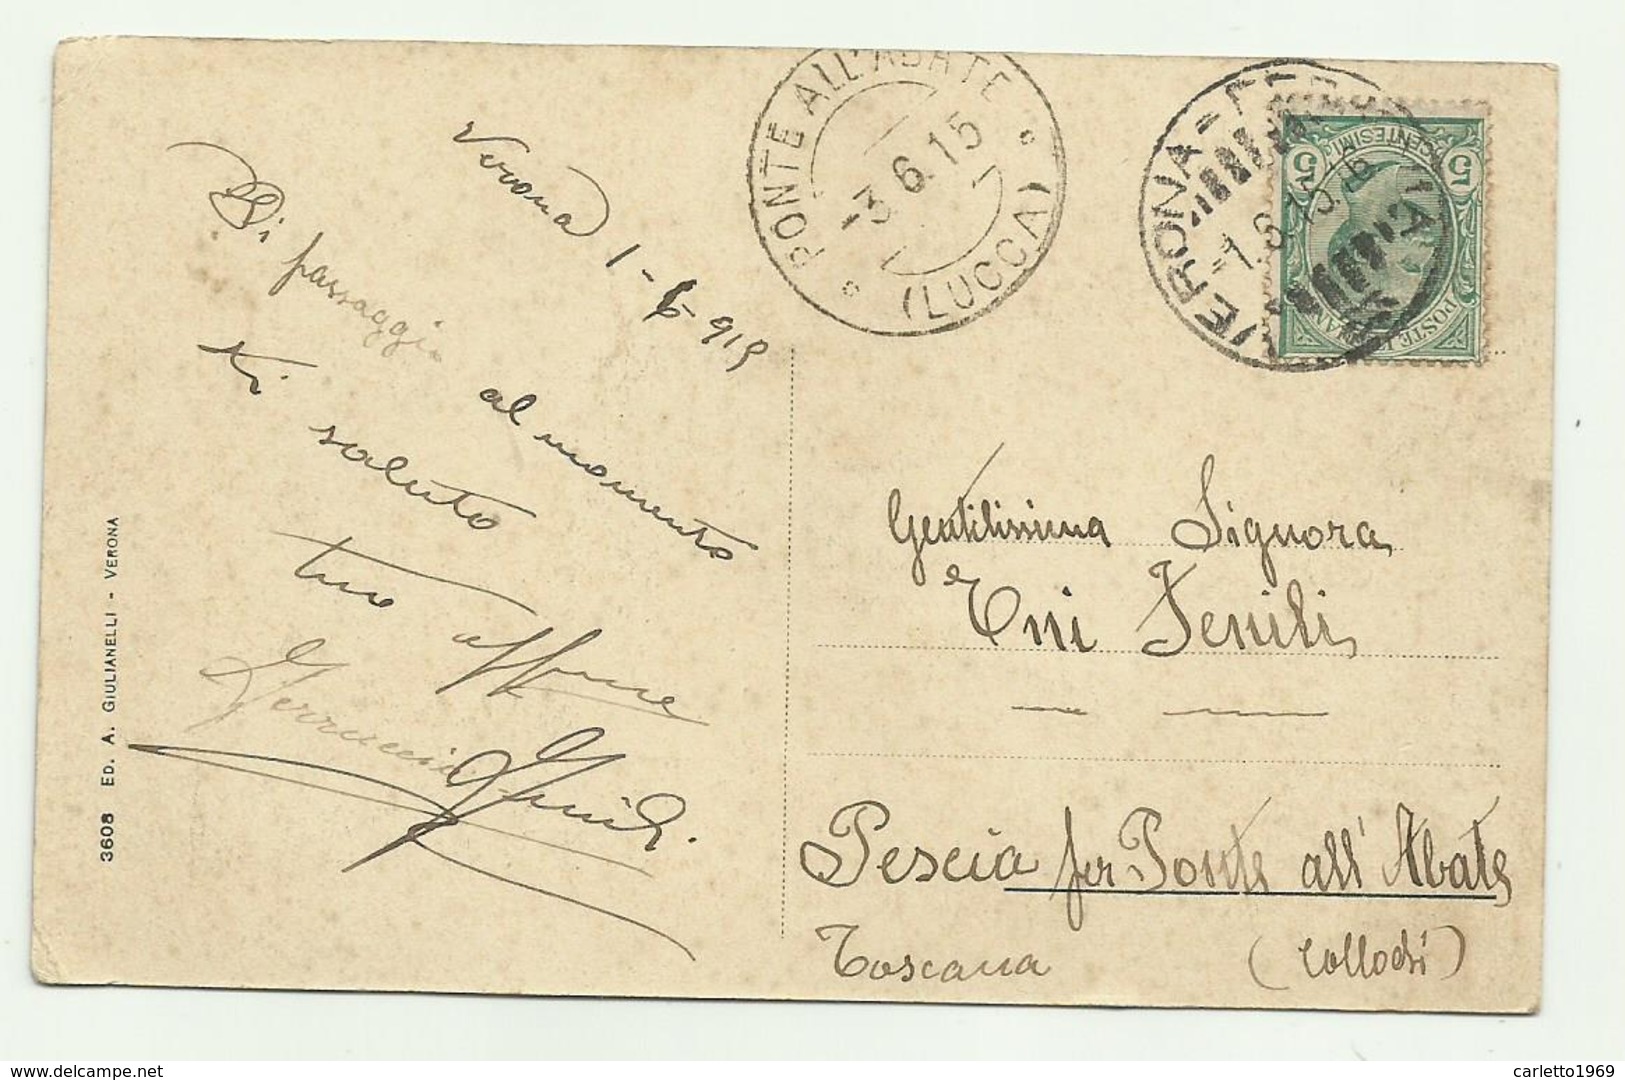 Verona 1-6-915
Di passaggio
al momento
ti saluto
tuo
Ferruccio
3608 ED. A. GIULIANELLI - VERONA
PONTE ALL'ABATE
-3.6.15
(LUCCA)
VERONA-FERROVIA
-1.6.15.
POSTE ITALIANE
CENTESIMI
5 5
Gentilissima Signora
Eni Fenili
Pescia per Ponte all'Abate
Toscana (Collodi)
www.delcampe.net
carletto1969